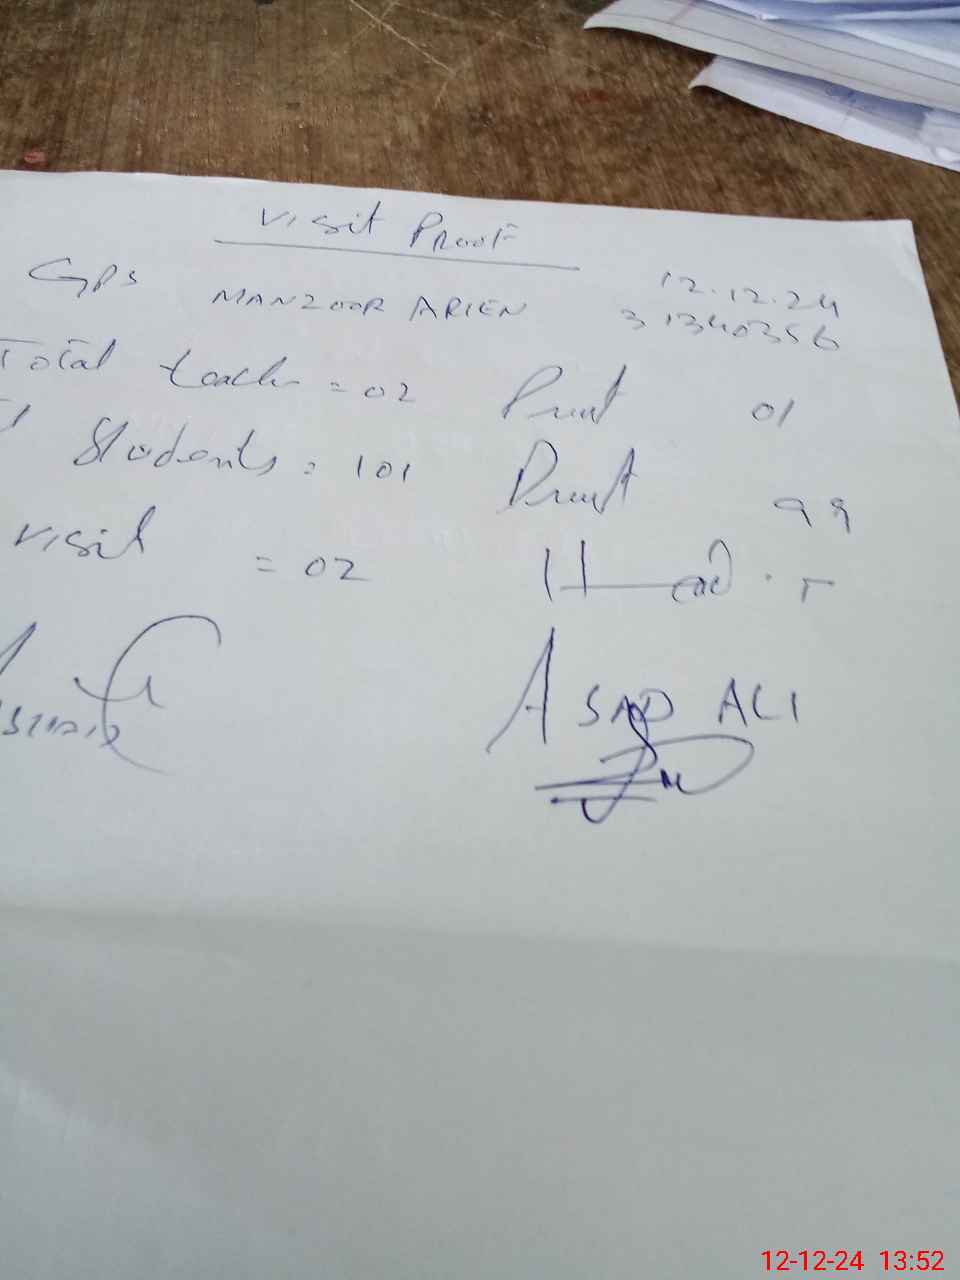 Visit Proof
GPS MANZOOR ARIEN 12.12.24
31340356
Total teach = 02 Prent 01
Students = 101 Prent 99
Visit = 02 Head . T
ASAD ALI
12-12-24 13:52